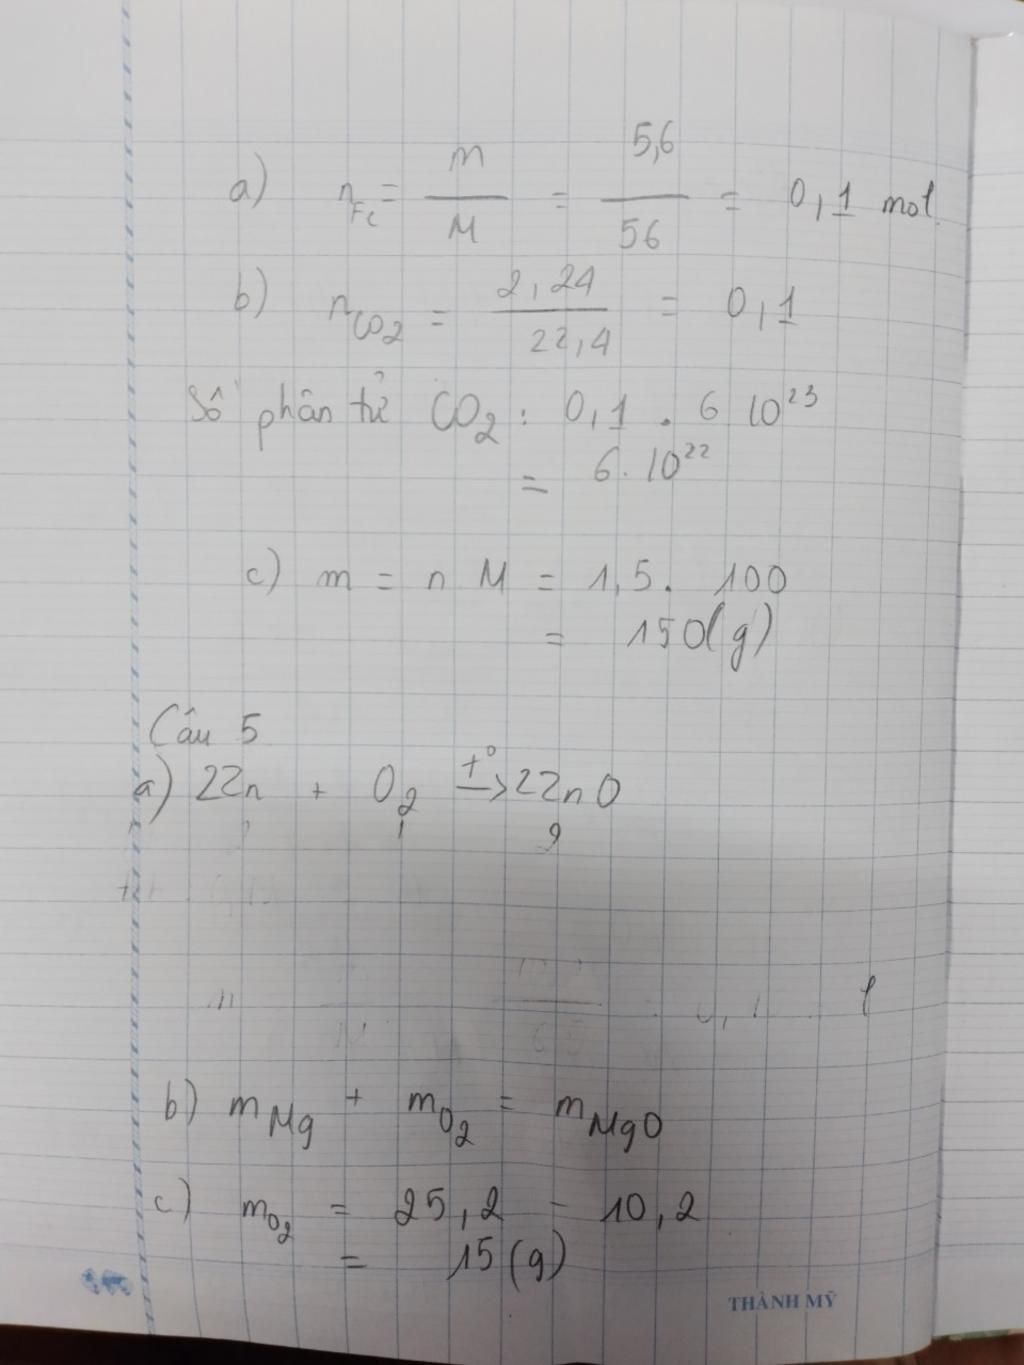 a) n Fe = m / M = 5,6 / 56 = 0,1 mol
b) nCO2 = 2,24 / 22,4 = 0,1
Số phân tử CO2 : 0,1 . 6 10^23
= 6. 10^22
c) m = n M = 1,5. 100
= 150(g)
Câu 5
a) 2Zn + O2 t° -> 2ZnO
1 2
b) m Mg + m O2 = m MgO
c) m O2 = 25,2 - 10,2
= 15 (g)
THÀNH MỸ